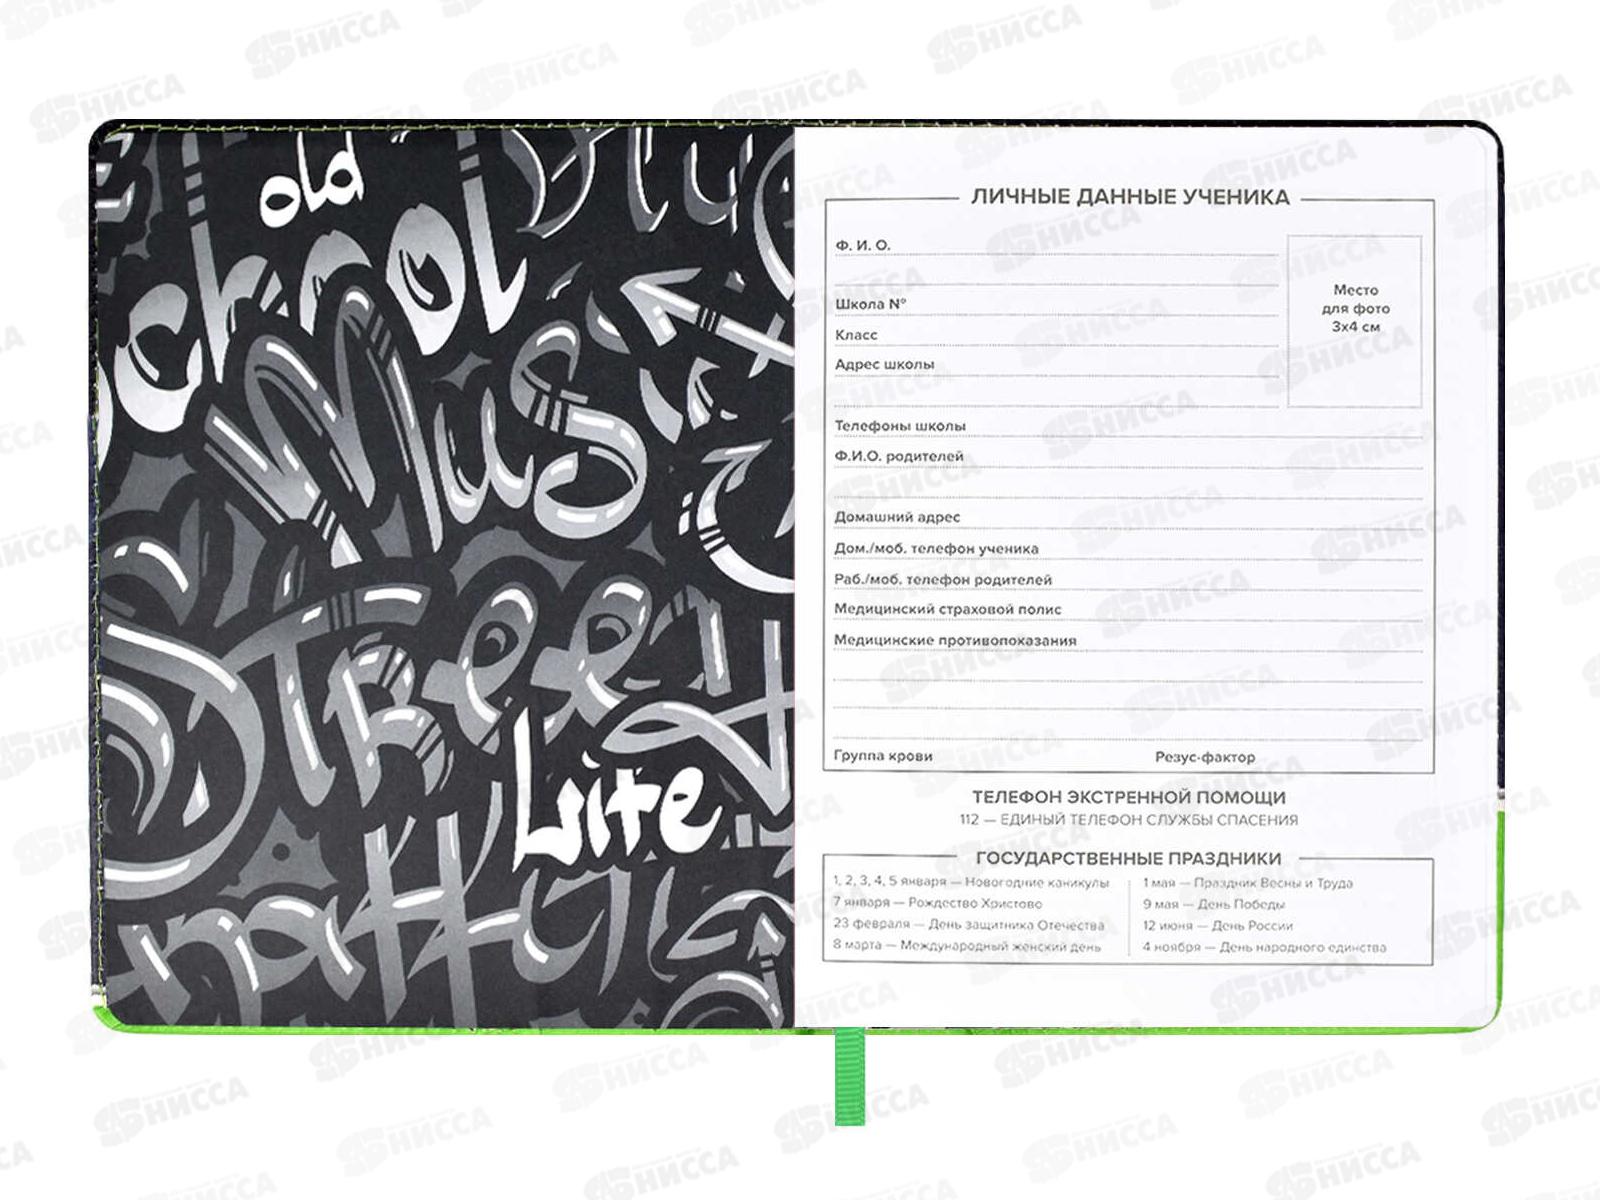 old
School
Music
Street
Life
ЛИЧНЫЕ ДАННЫЕ УЧЕНИКА
Ф. И. О.
Школа №
Класс
Адрес школы
Место
для фото
3х4 см
Телефоны школы
Ф.И.О. родителей
Домашний адрес
Дом./моб. телефон ученика
Раб./моб. телефон родителей
Медицинский страховой полис
Медицинские противопоказания
Группа крови Резус-фактор
ТЕЛЕФОН ЭКСТРЕННОЙ ПОМОЩИ
112 — ЕДИНЫЙ ТЕЛЕФОН СЛУЖБЫ СПАСЕНИЯ
ГОСУДАРСТВЕННЫЕ ПРАЗДНИКИ
1, 2, 3, 4, 5 января — Новогодние каникулы
7 января — Рождество Христово
23 февраля — День защитника Отечества
8 марта — Международный женский день
1 мая — Праздник Весны и Труда
9 мая — День Победы
12 июня — День России
4 ноября — День народного единства
НИССА